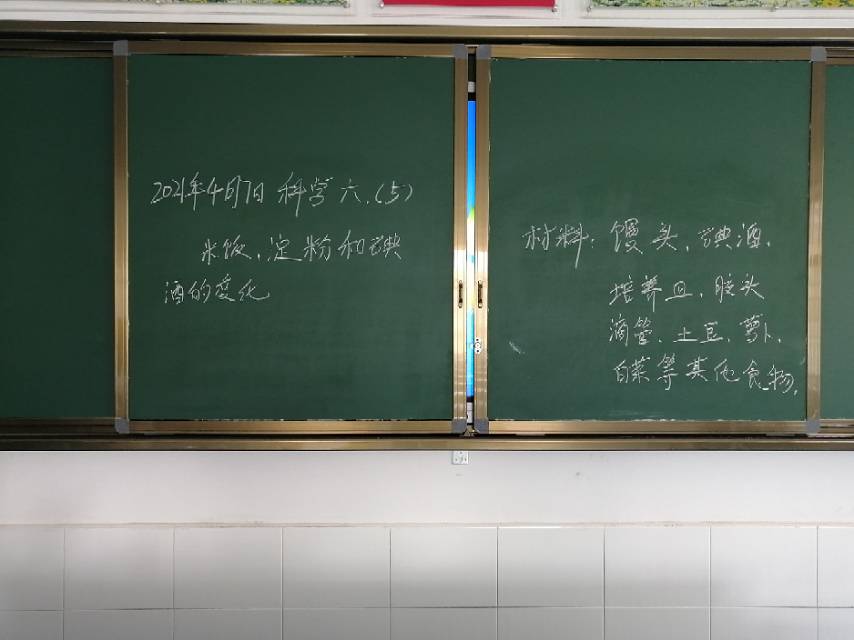 2021年4月7日 科学 六.(5)
米饭、淀粉和碘
酒的变化
材料：馒头、碘酒、
培养皿、胶头
滴管、土豆、萝卜、
白菜等其他食物。